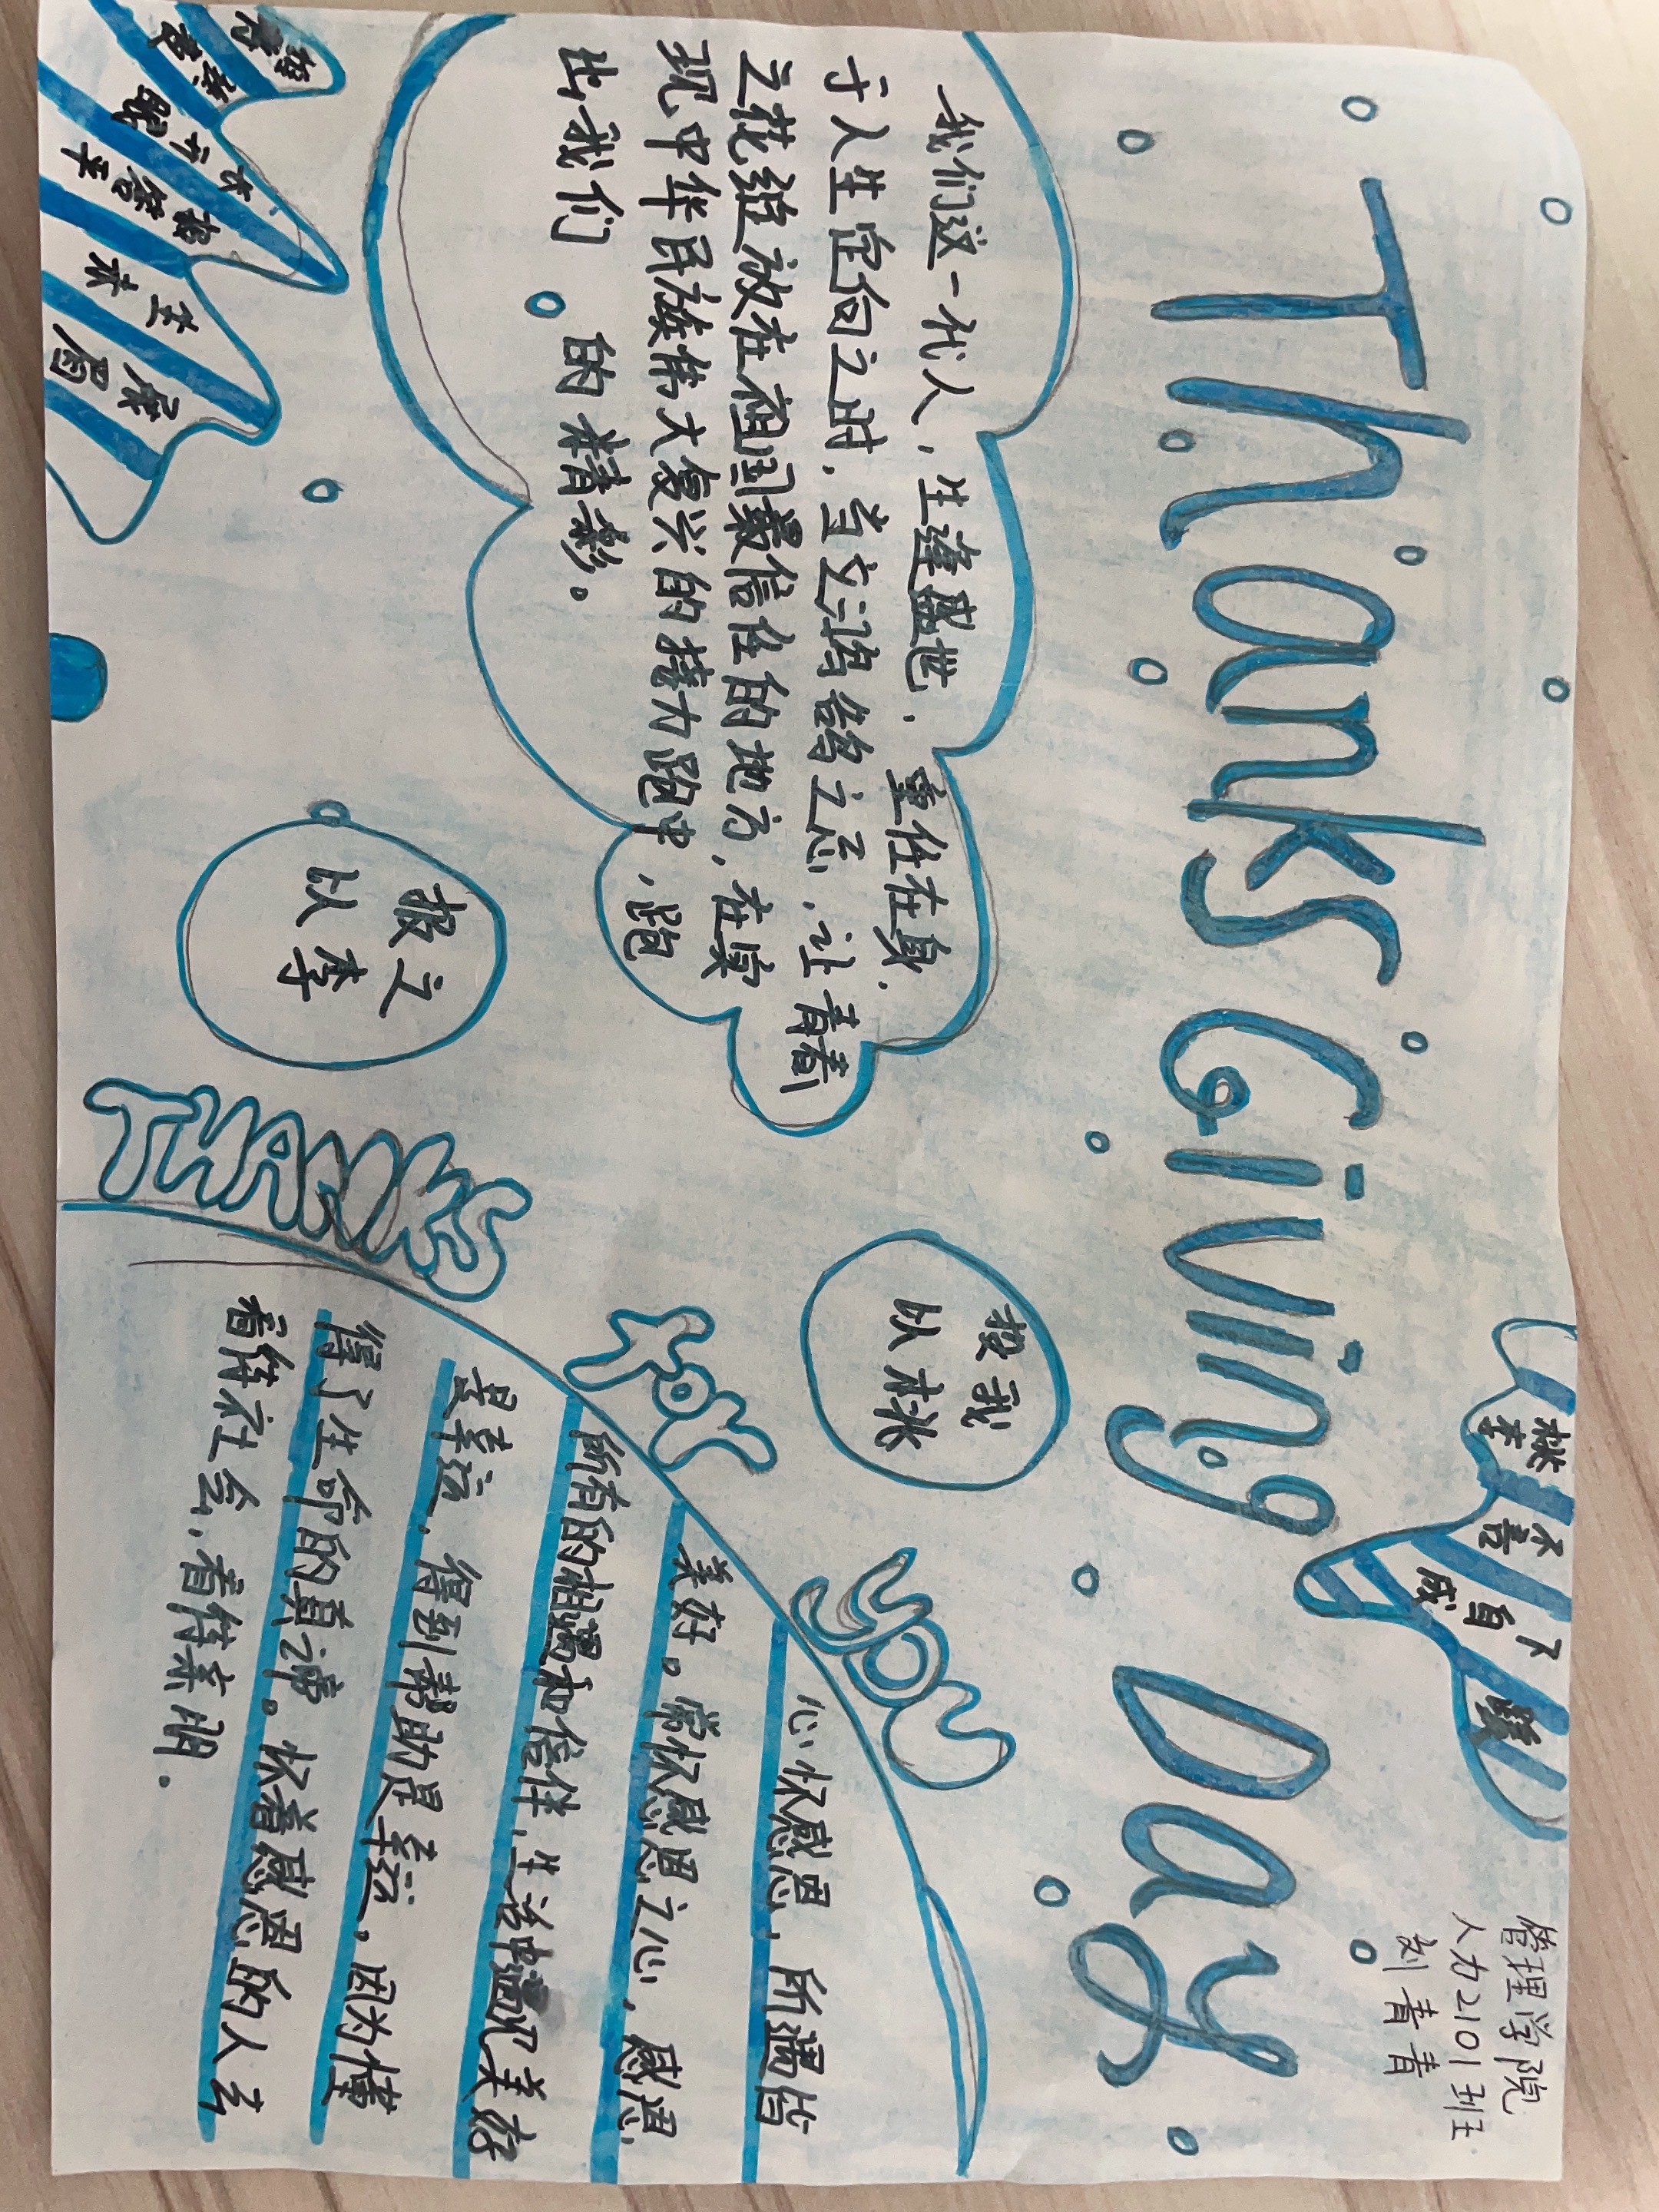 Thanks Giving Day
管理学院
人力2101班
刘青青
桃李
不言
下自
成
蹊
我们这一代人，生逢盛世，重任在身，
于人生定向之时，当立鸿鹄之志，让青春
之花绽放在祖国最信任的地方，在实
现中华民族伟大复兴的接力跑中，跑
出我们 的精彩。
投我
以桃
报之
以李
THANKS
FOR
YOU
心怀感恩，所遇皆
美好。常怀感恩之心，感恩
所有的相遇和伴，生活中遇见美好
是幸运，得到帮助是幸运。因为懂
得了生命的真谛。怀着感恩的人去
看待社会，看待亲朋.